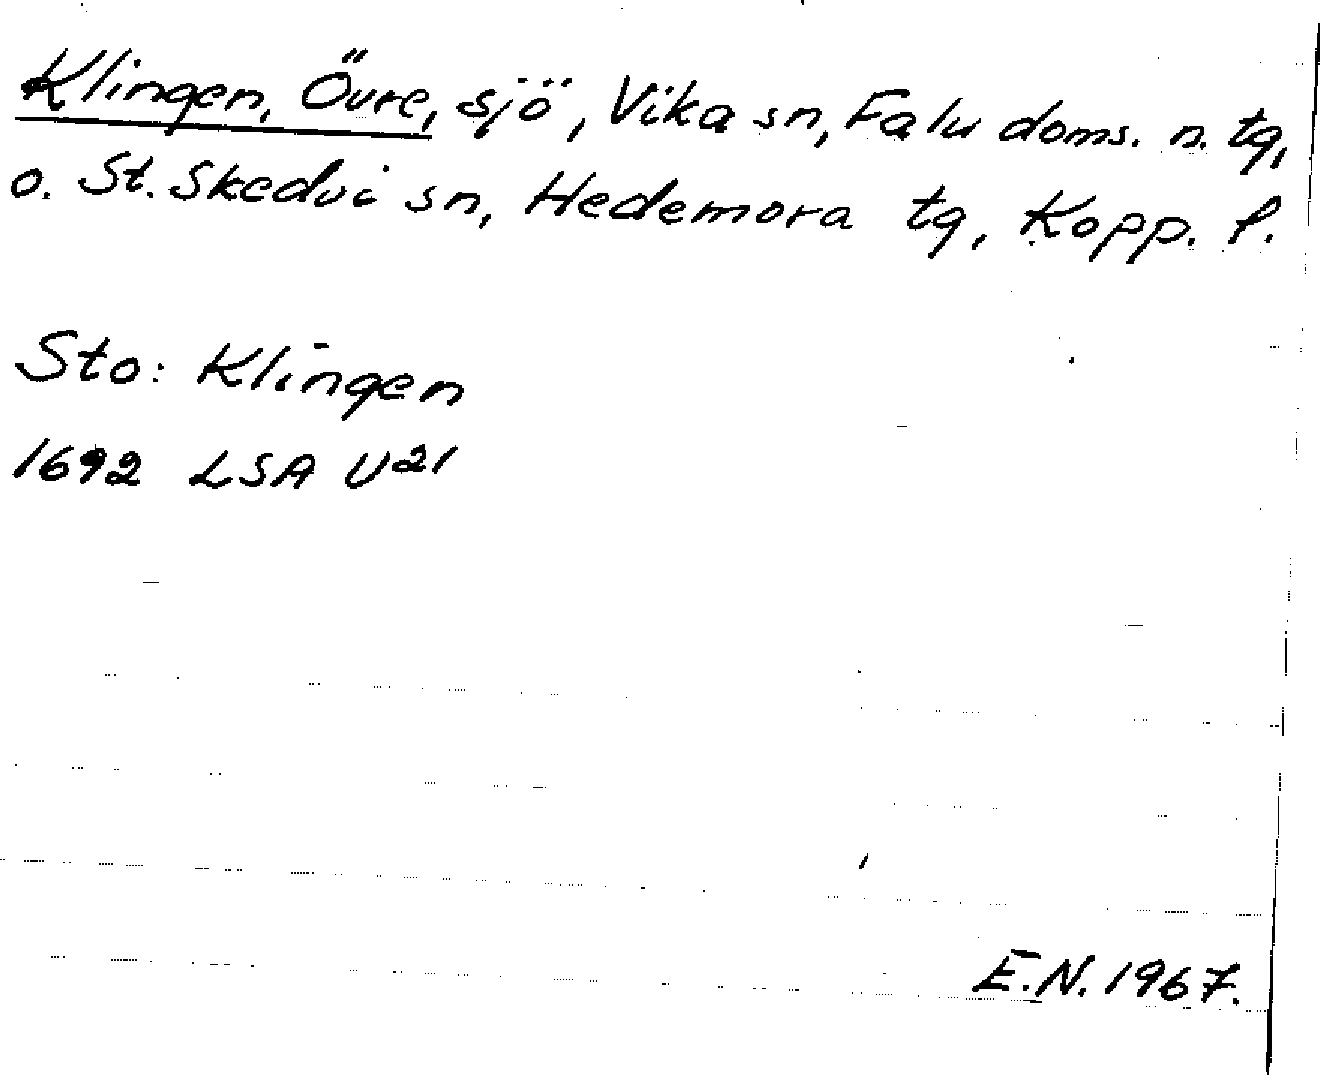 Klingen, Övre, sjö, Vika sn, Falu doms. n. tg,
o. St. Skedvi sn, Hedemora tg, Kopp. l.
Sto: Klingen
1692 LSA U21
E.N. 1967.